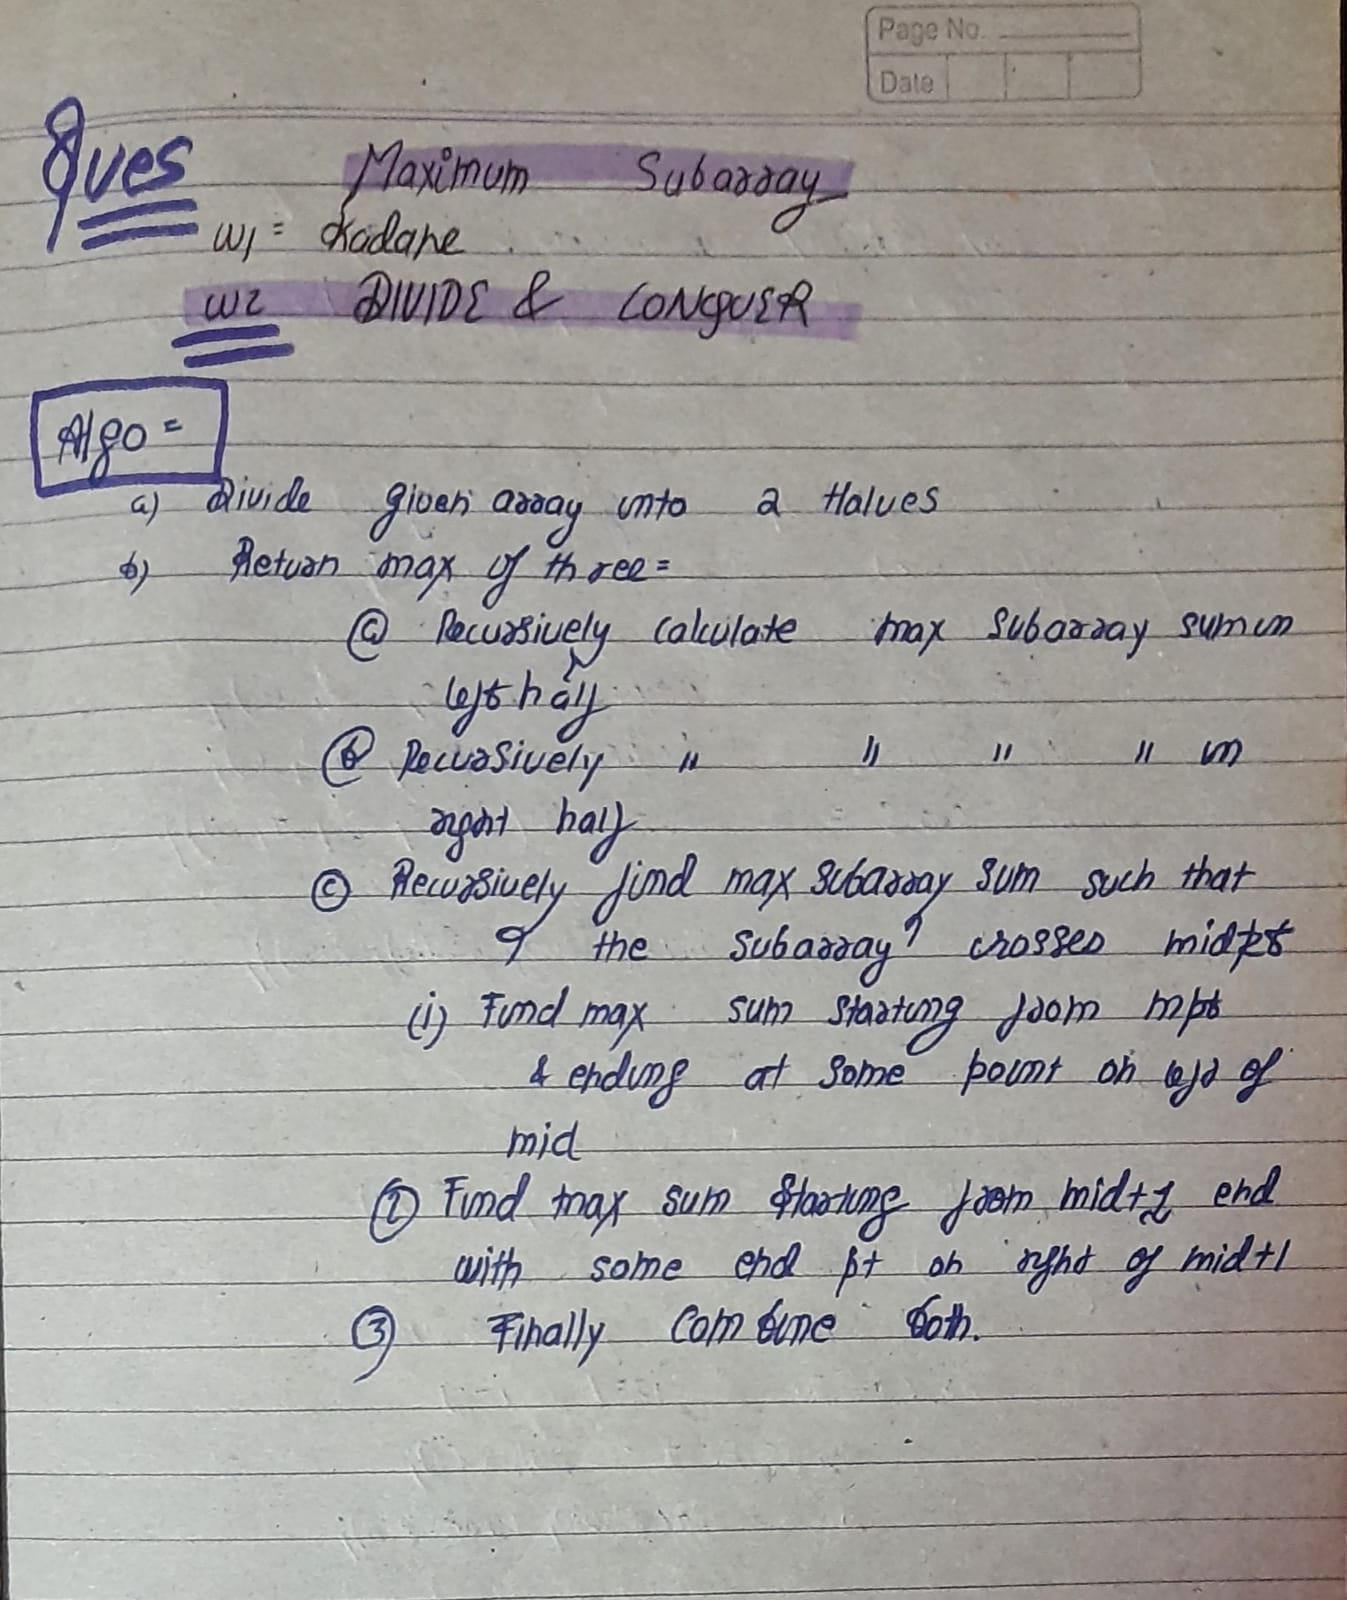 Page No.
Date
Ques Maximum Subarray
W1 = Kadane
W2 DIVIDE & CONQUER
Algo =
a) Divide given array into 2 Halves
b) Return max of three =
(a) Recursively calculate max subarray sum in
left half
(b) Recursively " " " " in
right half
(c) Recursively find max subarray sum such that
the subarray crosses midpt
(i) Find max sum starting from mpt
& ending at some point on left of
mid
(2) Find max sum starting from mid+1 end
with some end pt on right of mid+1
(3) Finally Combine both.